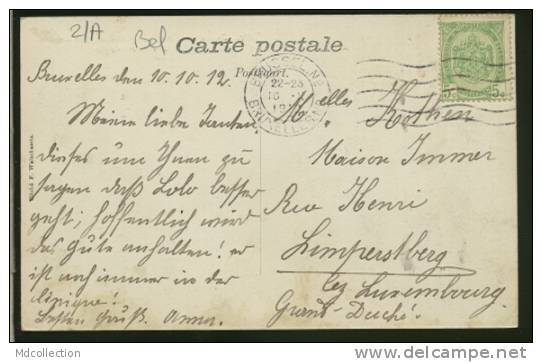 2/A
Bel
Carte postale
Postkaart.
Bruxelles den 10.10.12.
Meine liebe Tanten
dieses um Ihnen zu
sagen daß Lolo besser
geht; hoffentlich wird
das Gute anhalten! er
ist noch immer in der
clinique!
Besten Gruß. Anna.
BRUSSEL
22-23
BRUXELLES
5c 5c
Melles Kothen
Maison Immer
Rue Henri
Limperstberg
bei Luxembourg.
Grand-Duché.
Mdcollection
www.delcampe.net